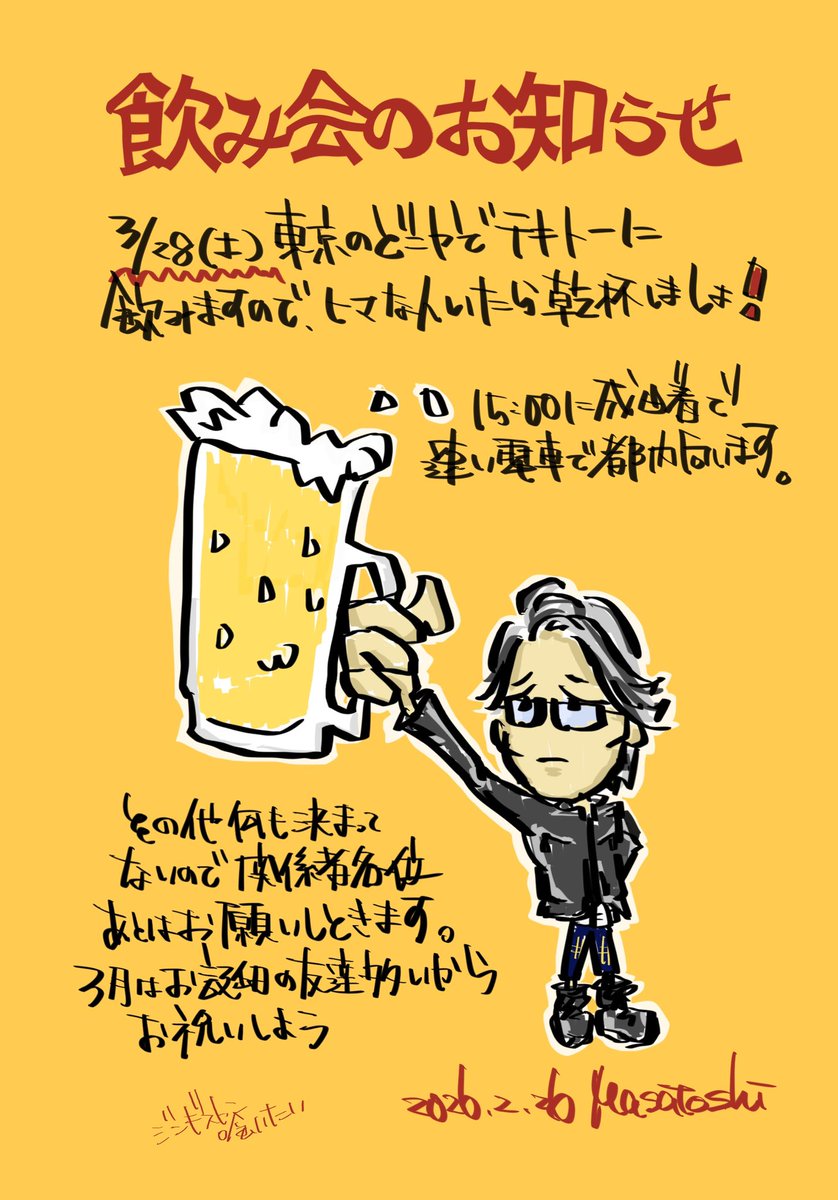 飲み会のお知らせ
3/28(土)東京のどこかでテキトーに
飲みますので、ヒマな人いたら乾杯しましょ!
15:00に成田着で
速い電車で都内向います。
その他何も決まって
ないので関係者各位
あとはお願いしときます。
3月はお誕生日の友達多いから
お祝いしよう
2026.2.26 Masatoshi
ジンギスカン喰いたい